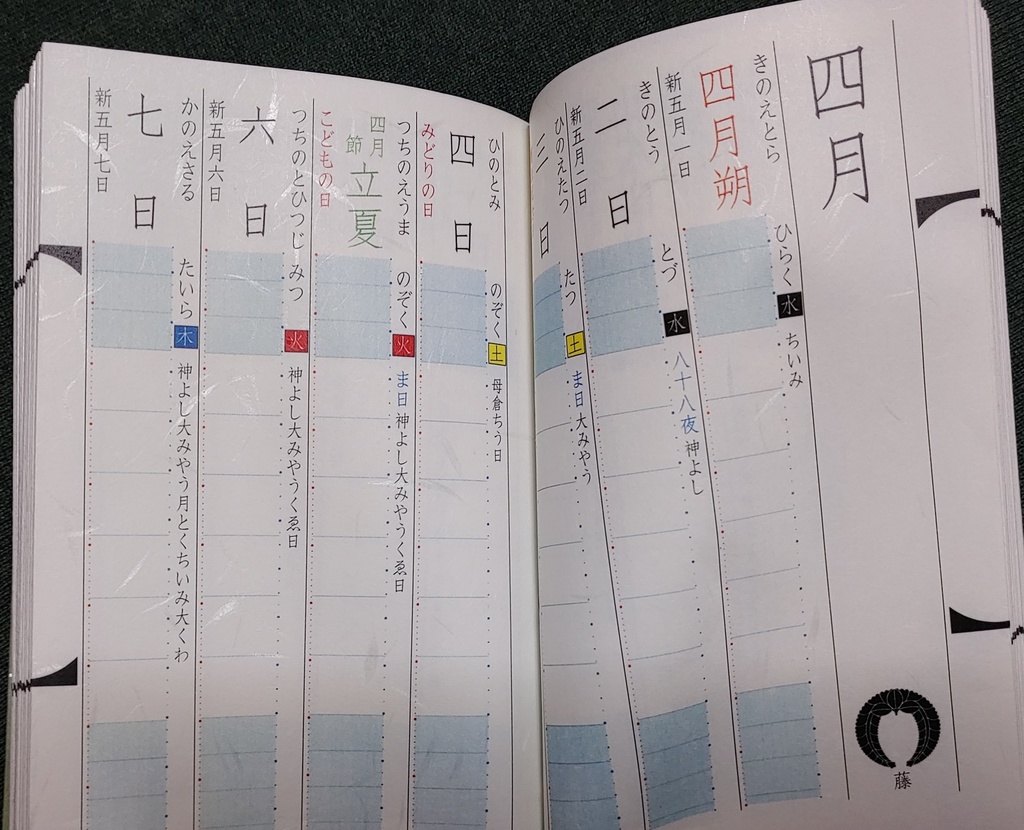 四月
藤
きのえとら
四月朔
新五月一日
ひらく 水 ちいみ
きのとう
二日
新五月二日
とづ 水 八十八夜 神よし
ひのえたつ
三日
たつ 土 ま日 大みやう
ひのとみ
四日
みどりの日
のぞく 土 母倉ちう日
つちのえうま
四月節 立夏
こどもの日
のぞく 火 ま日 神よし大みやうくゑ日
つちのとひつじ
六日
新五月六日
みつ 火 神よし大みやうくゑ日
かのえさる
七日
新五月七日
たいら 木 神よし大みやう月とくちいみ大くわ